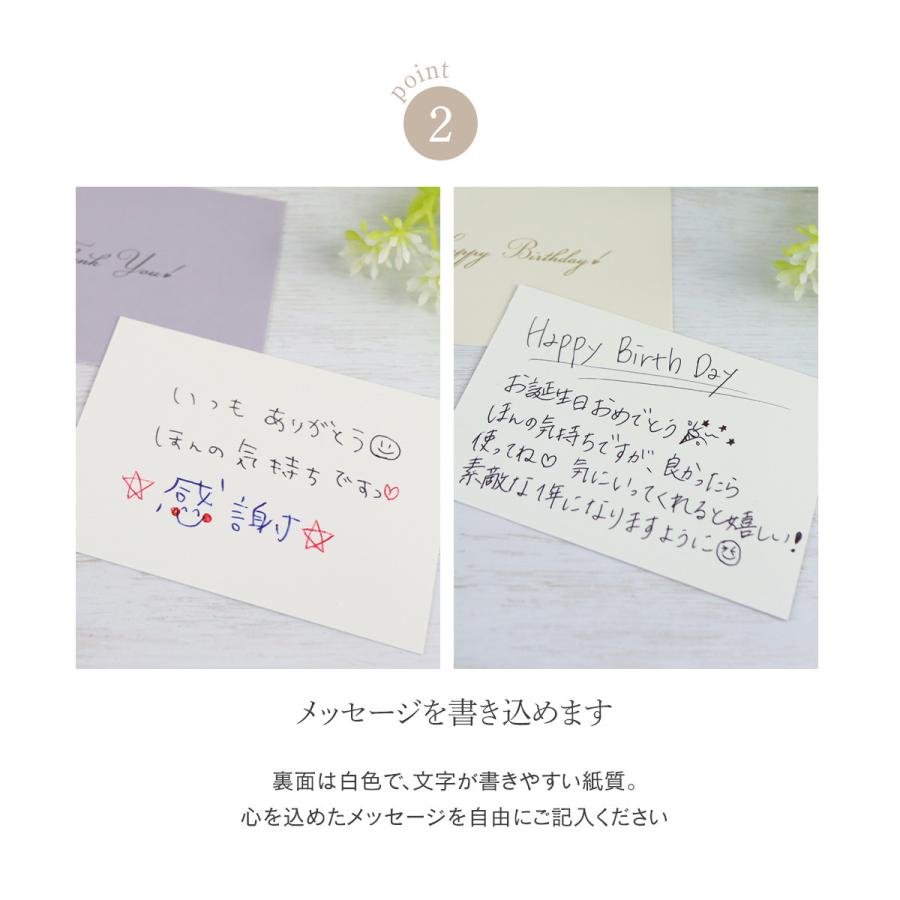 point
2
Thank You!
いつも ありがとう
ほんの 気持ちですっ♡
☆感謝☆
Happy Birthday!
Happy Birth Day
お誕生日おめでとう
ほんの気持ちですが、良かったら
使ってね♡ 気にいってくれると嬉しい!
素敵な1年になりますように
メッセージを書き込めます
裏面は白色で、文字が書きやすい紙質。
心を込めたメッセージを自由にご記入ください